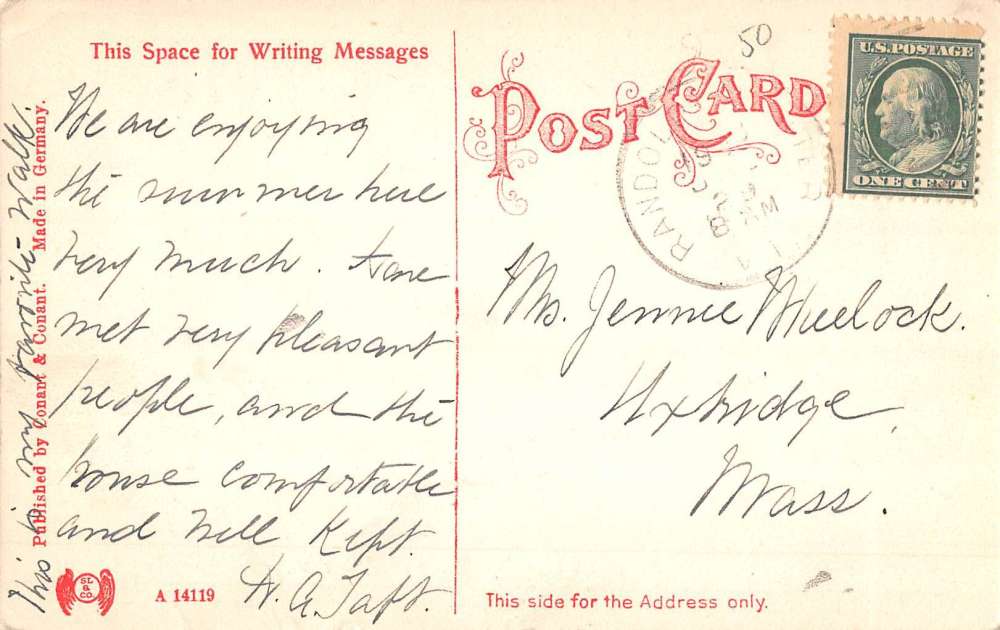 This Space for Writing Messages
We are enjoying
the summer here
very much. Have
met very pleasant
people, and the
house comfortable
and well kept.
This is my favorite walk.
Published by Conant & Conant. Made in Germany.
SL
&
CO
A 14119
POST CARD
50
RANDOL
U.S. POSTAGE
ONE CENT
Jennie Wheelock.
Uxbridge,
Mass.
A. Taft.
This side for the Address only.